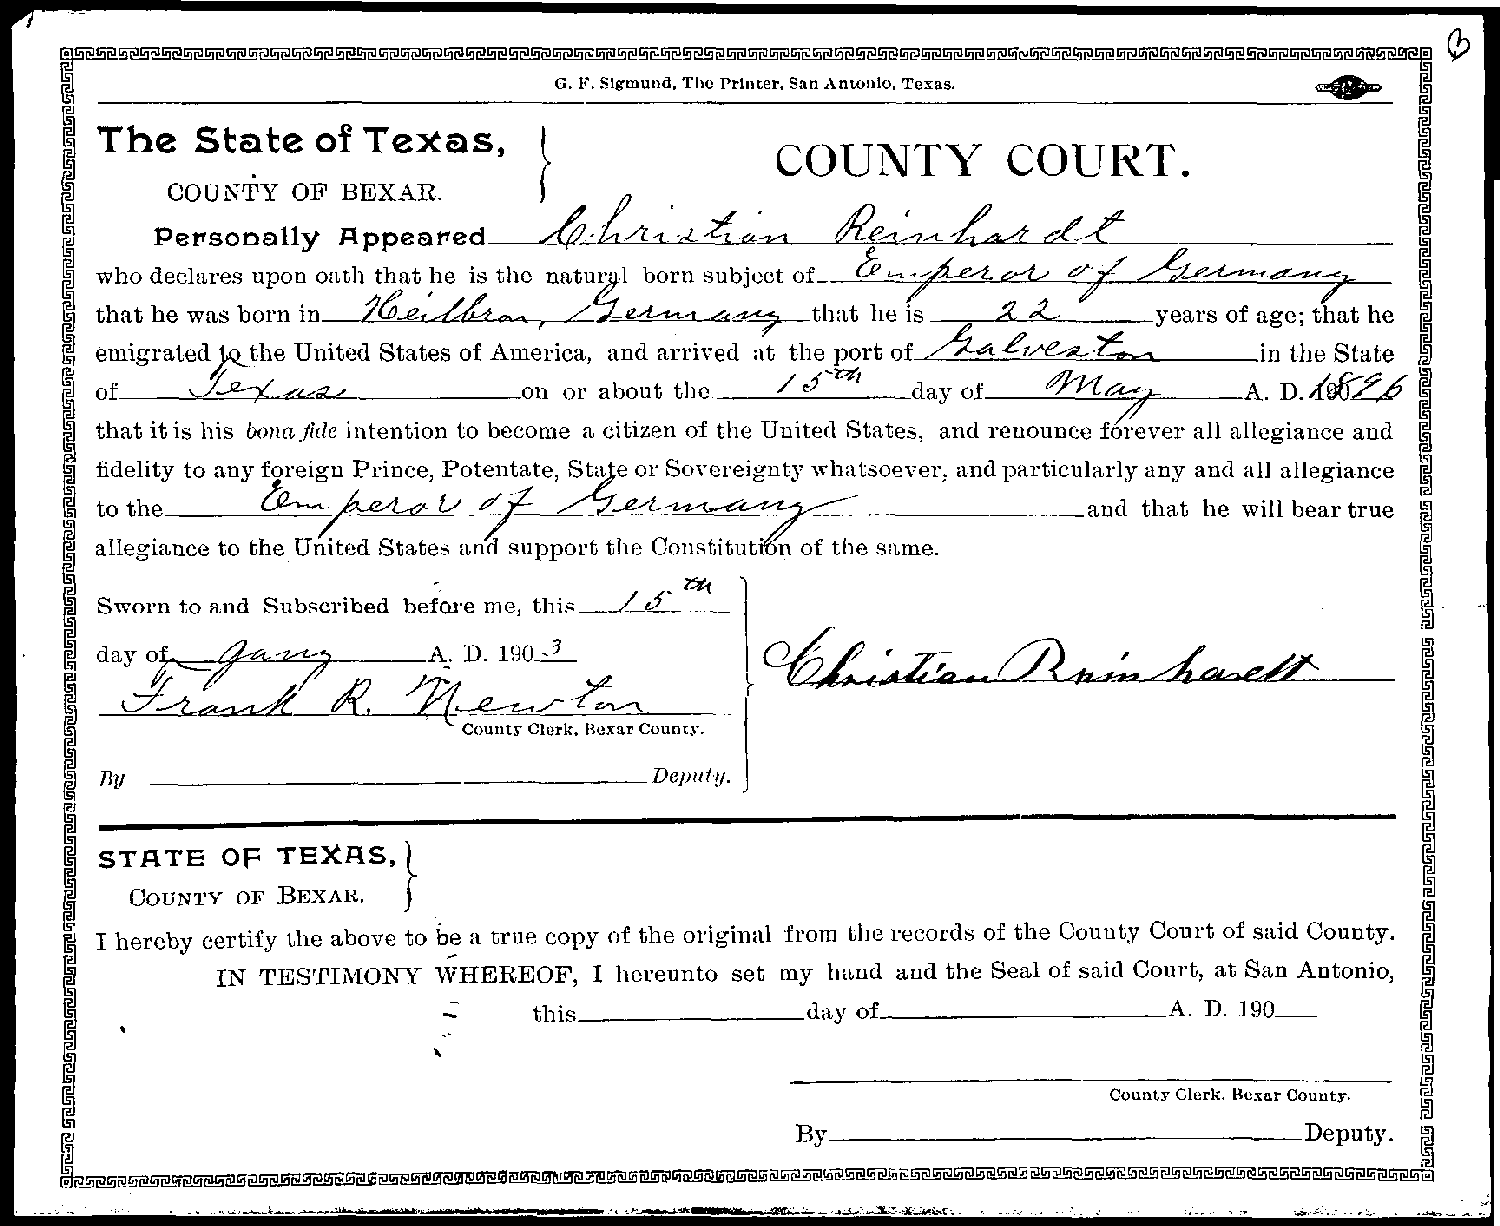 B
G. F. Sigmund, The Printer, San Antonio, Texas.
The State of Texas,
COUNTY OF BEXAR.
COUNTY COURT.
Personally Appeared Christian Reinhardt
who declares upon oath that he is the natural born subject of Emperor of Germany
that he was born in Heilbron, Germany that he is 22 years of age; that he
emigrated to the United States of America, and arrived at the port of Galveston in the State
of Texas on or about the 15th day of May A. D. 1896
that it is his bona fide intention to become a citizen of the United States, and renounce forever all allegiance and
fidelity to any foreign Prince, Potentate, State or Sovereignty whatsoever, and particularly any and all allegiance
to the Emperor of Germany and that he will bear true
allegiance to the United States and support the Constitution of the same.
Sworn to and Subscribed before me, this 15th
day of Jany A. D. 1903
Christian Reinhardt
Frank R. Newton
County Clerk, Bexar County.
By Deputy.
STATE OF TEXAS,
COUNTY OF BEXAR.
I hereby certify the above to be a true copy of the original from the records of the County Court of said County.
IN TESTIMONY WHEREOF, I hereunto set my hand and the Seal of said Court, at San Antonio,
this day of A. D. 190
County Clerk, Bexar County.
By Deputy.